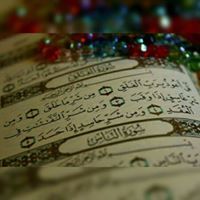 سُورَةُ الفَلَقِ
أَعُوذُ بِرَبِّ الْفَلَقِ ۝ مِن شَرِّ مَا خَلَقَ ۝ وَمِن
غَاسِقٍ إِذَا وَقَبَ ۝ وَمِن شَرِّ النَّفَّٰثَٰتِ فِى
الْعُقَدِ ۝ وَمِن شَرِّ حَاسِدٍ إِذَا حَسَدَ ۝
سُورَةُ النَّاسِ
بِرَبِّ النَّاسِ